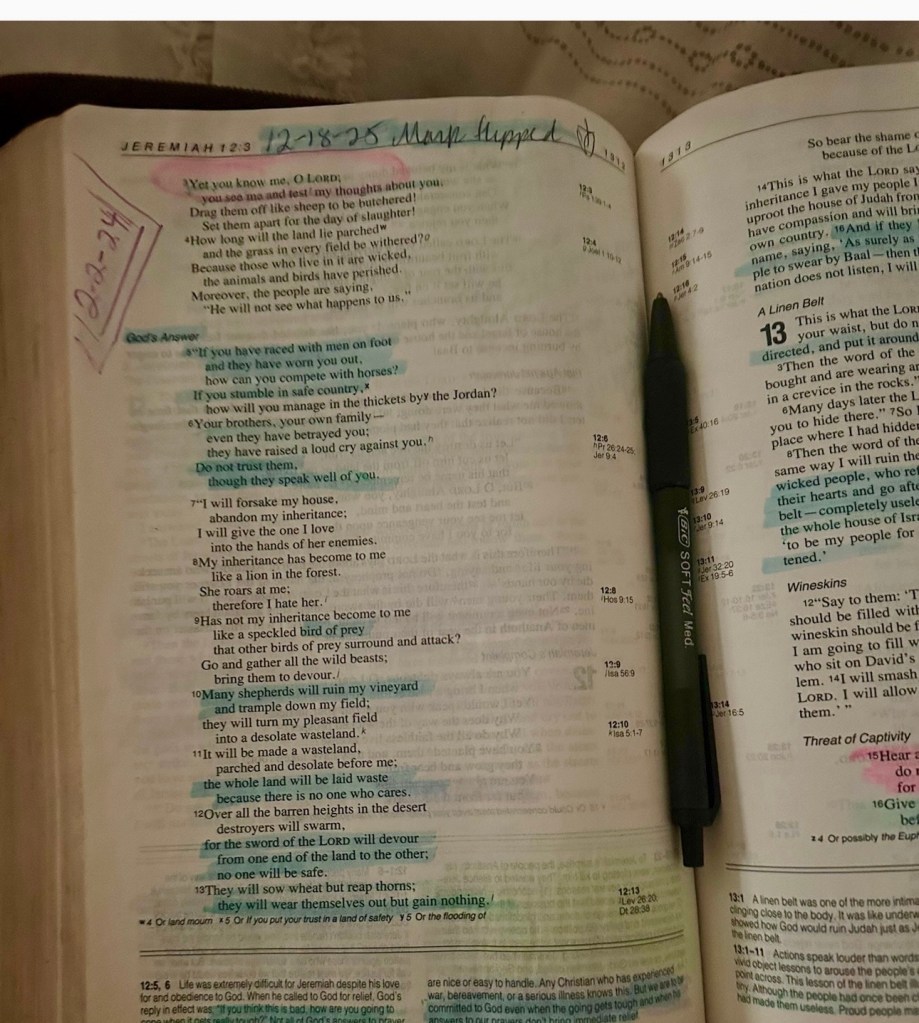 JEREMIAH 12:3
12-18-25
1312
12-2-24
³Yet you know me, O LORD;
you see me and test my thoughts about you.
Drag them off like sheep to be butchered!
Set them apart for the day of slaughter!
⁴How long will the land lie parched
and the grass in every field be withered?
Because those who live in it are wicked,
the animals and birds have perished.
Moreover, the people are saying,
"He will not see what happens to us."
God's Answer
⁵"If you have raced with men on foot
and they have worn you out,
how can you compete with horses?
If you stumble in safe country,ˣ
how will you manage in the thickets byʸ the Jordan?
⁶Your brothers, your own family—
even they have betrayed you;
they have raised a loud cry against you.
Do not trust them,
though they speak well of you.
⁷"I will forsake my house,
abandon my inheritance;
I will give the one I love
into the hands of her enemies.
⁸My inheritance has become to me
like a lion in the forest.
She roars at me;
therefore I hate her.
⁹Has not my inheritance become to me
like a speckled bird of prey
that other birds of prey surround and attack?
Go and gather all the wild beasts;
bring them to devour.
¹⁰Many shepherds will ruin my vineyard
and trample down my field;
they will turn my pleasant field
into a desolate wasteland.
¹¹It will be made a wasteland,
parched and desolate before me;
the whole land will be laid waste
because there is no one who cares.
¹²Over all the barren heights in the desert
destroyers will swarm,
for the sword of the LORD will devour
from one end of the land to the other;
no one will be safe.
¹³They will sow wheat but reap thorns;
they will wear themselves out but gain nothing.
12:3
12:4
12:6
Pr 26:24-25
Jer 9:4
12:8
Hos 9:15
12:9
Isa 56:9
12:10
Isa 5:1-7
12:13
Lev 26:20
Dt 28:38
4 Or land mourn x 5 Or If you put your trust in a land of safety y 5 Or the flooding of
12:5, 6 Life was extremely difficult for Jeremiah despite his love
for and obedience to God. When he called to God for relief, God's
reply in effect was, "If you think this is bad, how are you going to
are nice or easy to handle. Any Christian who has experienced
war, bereavement, or a serious illness knows this. But we are to be
committed to God even when the going gets tough and when he
answers to our prayers don't bring immediate relief.
BIC SOFT Feel Med.
1313
So bear the shame
because of the
¹⁴This is what the LORD
inheritance I gave my people
uproot the house of Judah
have compassion and will
own country. ¹⁶And if they
name, saying, 'As surely as
ple to swear by Baal—then
nation does not listen, I will
A Linen Belt
13 This is what the
your waist, but do
directed, and put it around
³Then the word of the
bought and are wearing
in a crevice in the rocks."
⁶Many days later the
you to hide there." ⁷So
place where I had hidden
⁸Then the word of the
same way I will ruin the
wicked people, who
their hearts and go
belt—completely
the whole house of
'to be my people for
tened.'
Wineskins
¹²"Say to them:
should be filled with
wineskin should be
I am going to fill
who sit on David's
lem. ¹⁴I will smash
LORD. I will allow
them.'"
Threat of Captivity
¹⁵Hear
do
for
¹⁶Give
Ex 40:16
13:9
Lev 26:19
13:10
Jer 9:14
13:11
Jer 32:20
Ex 19:5-6
13:14
Jer 16:5
4 Or possibly the
13:1 A linen belt was one of the more
clinging close to the body. It was like
showed how God would ruin Judah just as
the linen belt.
13:1-11 Actions speak louder than words
vivid object lessons to arouse the people's
point across. This lesson of the linen belt
Although the people had once been
had made them useless. Proud people